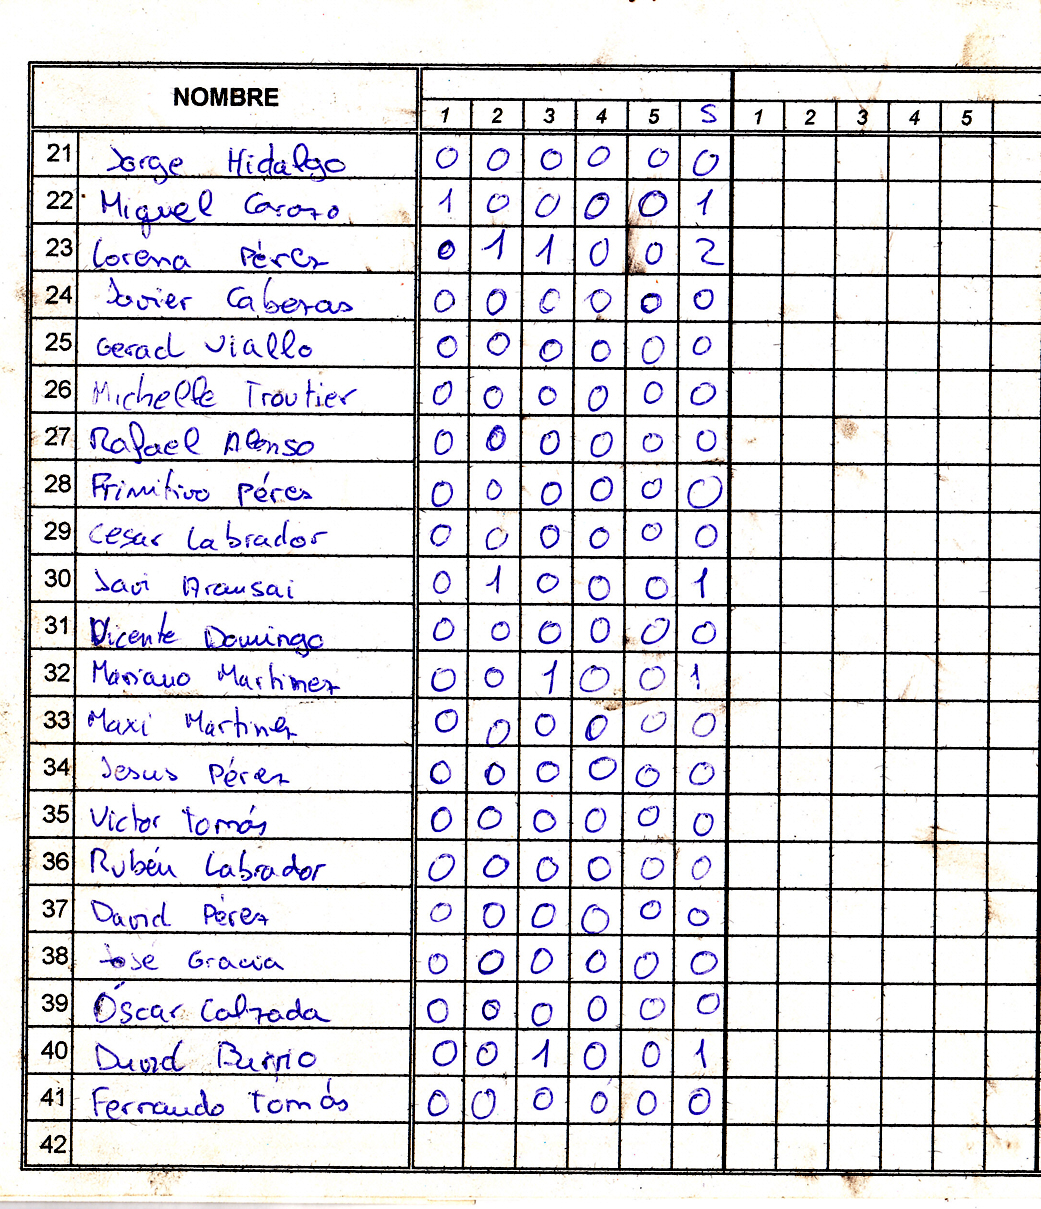 NOMBRE
1 2 3 4 5 S 1 2 3 4 5
21 Jorge Hidalgo 0 0 0 0 0 0
22 Miguel Carazo 1 0 0 0 0 1
23 Lorena Pérez 0 1 1 0 0 2
24 Javier Cabezas 0 0 0 0 0 0
25 Gerad Viallo 0 0 0 0 0 0
26 Michelle Troutier 0 0 0 0 0 0
27 Rafael Alonso 0 0 0 0 0 0
28 Primitivo Pérez 0 0 0 0 0 0
29 Cesar Labrador 0 0 0 0 0 0
30 Javi Aransai 0 1 0 0 0 1
31 Vicente Domingo 0 0 0 0 0 0
32 Mariano Martinez 0 0 1 0 0 1
33 Maxi Martinez 0 0 0 0 0 0
34 Jesus Pérez 0 0 0 0 0 0
35 Victor Tomás 0 0 0 0 0 0
36 Rubén Labrador 0 0 0 0 0 0
37 David Pérez 0 0 0 0 0 0
38 José Gracia 0 0 0 0 0 0
39 Óscar Calzada 0 0 0 0 0 0
40 David Burrio 0 0 1 0 0 1
41 Fernando Tomás 0 0 0 0 0 0
42